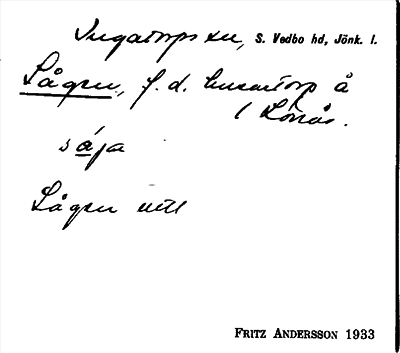 Ingatorps sn, S. Vedbo hd, Jönk. l.
Lågen, f. d. husartorp å
Lönås.
såja
Lågen
FRITZ ANDERSSON 1933